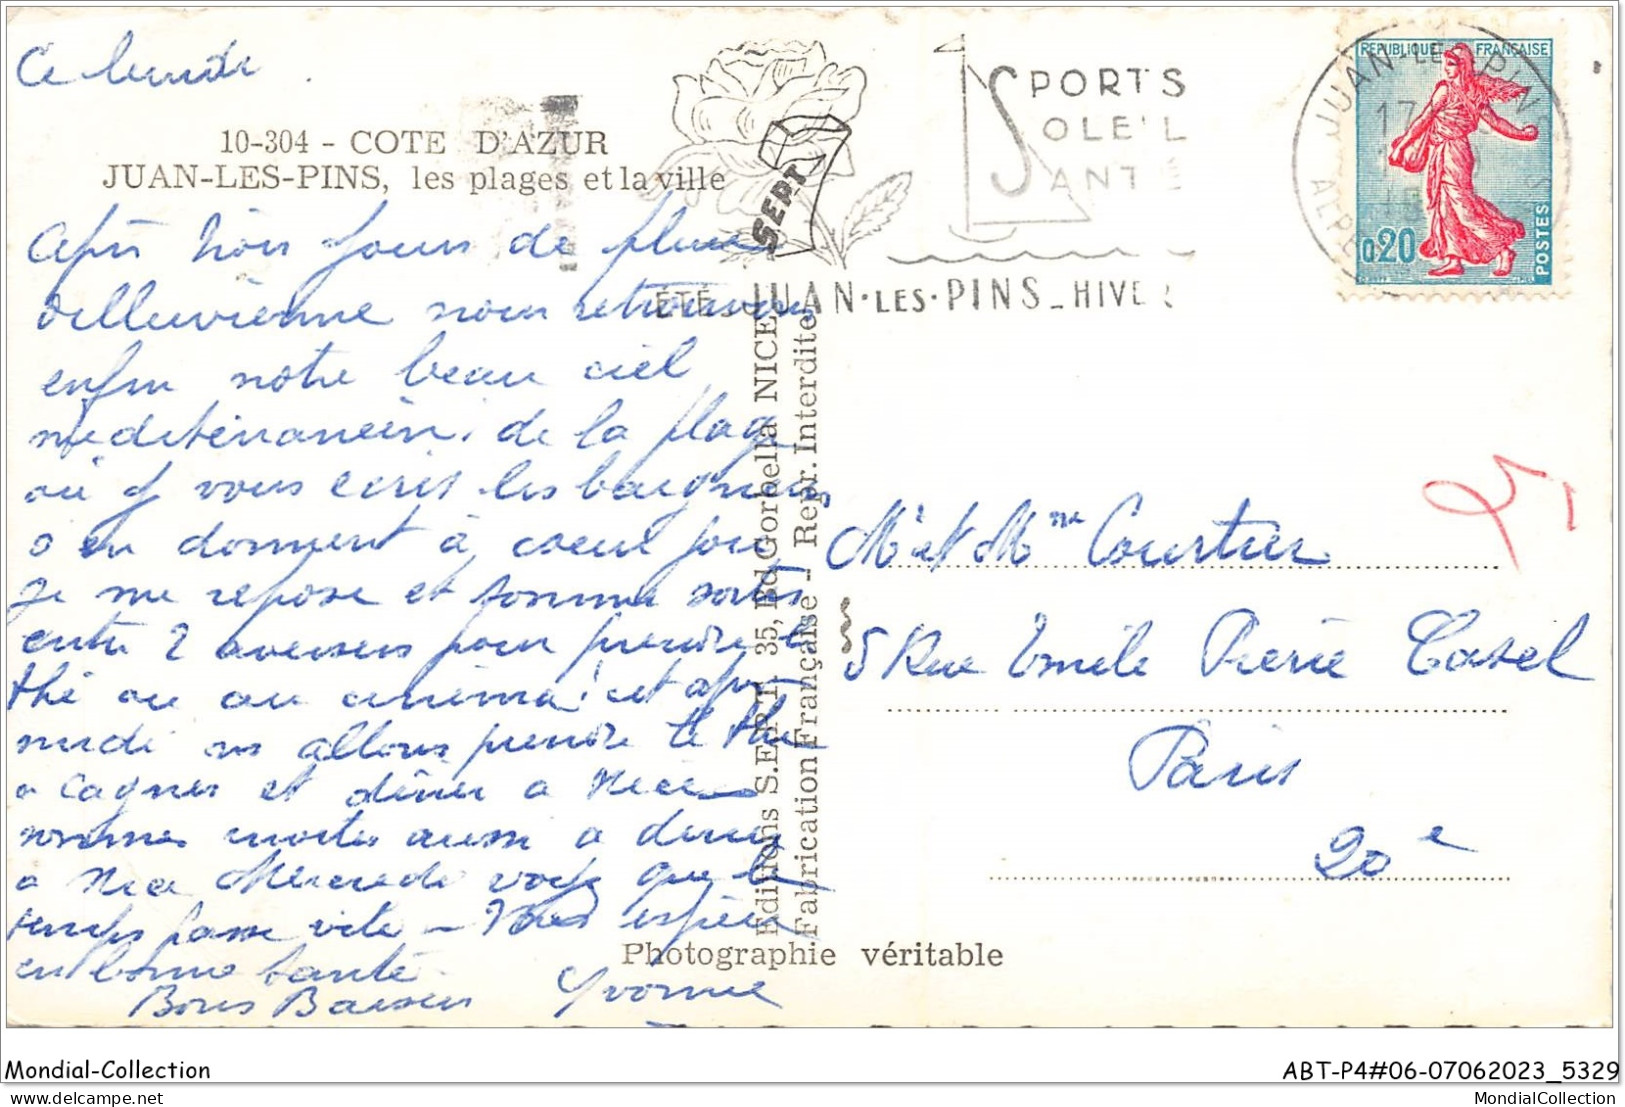 Ce lundi
10-304 - COTE D'AZUR
JUAN-LES-PINS, les plages et la ville
après trois jours de pluie
dilluvienne nous retrouvons
enfin notre beau ciel
méditerranéen, de la plage
où je vous écris les baigneurs
s'en donnent à coeur joie
je me repose et sommes sorties
entre 2 averses pour prendre le
thé ou au cinéma! cet après
midi ns allons prendre le thé
a Cagnes et dîner a Nice
sommes invités aussi a diner
a Nice Mercredi voyez que le
temps passe vite - Vous espère
en bonne santé
Bons Baisers Yvonne
SPORTS
SOLEIL
SANTÉ
SEPT
ÉTÉ - JUAN·LES·PINS - HIVER
JUAN-LES-PINS
17
ALPE
REPUBLIQUE FRANÇAISE
0,20
POSTES
Editions S.E.P.T. 35, Bd Gorbella NICE
Fabrication Française - Repr. Interdite
Mr et Mme Courtier
5 Rue Emile Pierre Casel
Paris
20e
Photographie véritable
Mondial-Collection
ABT-P4#06-07062023_5329
MondialCollection